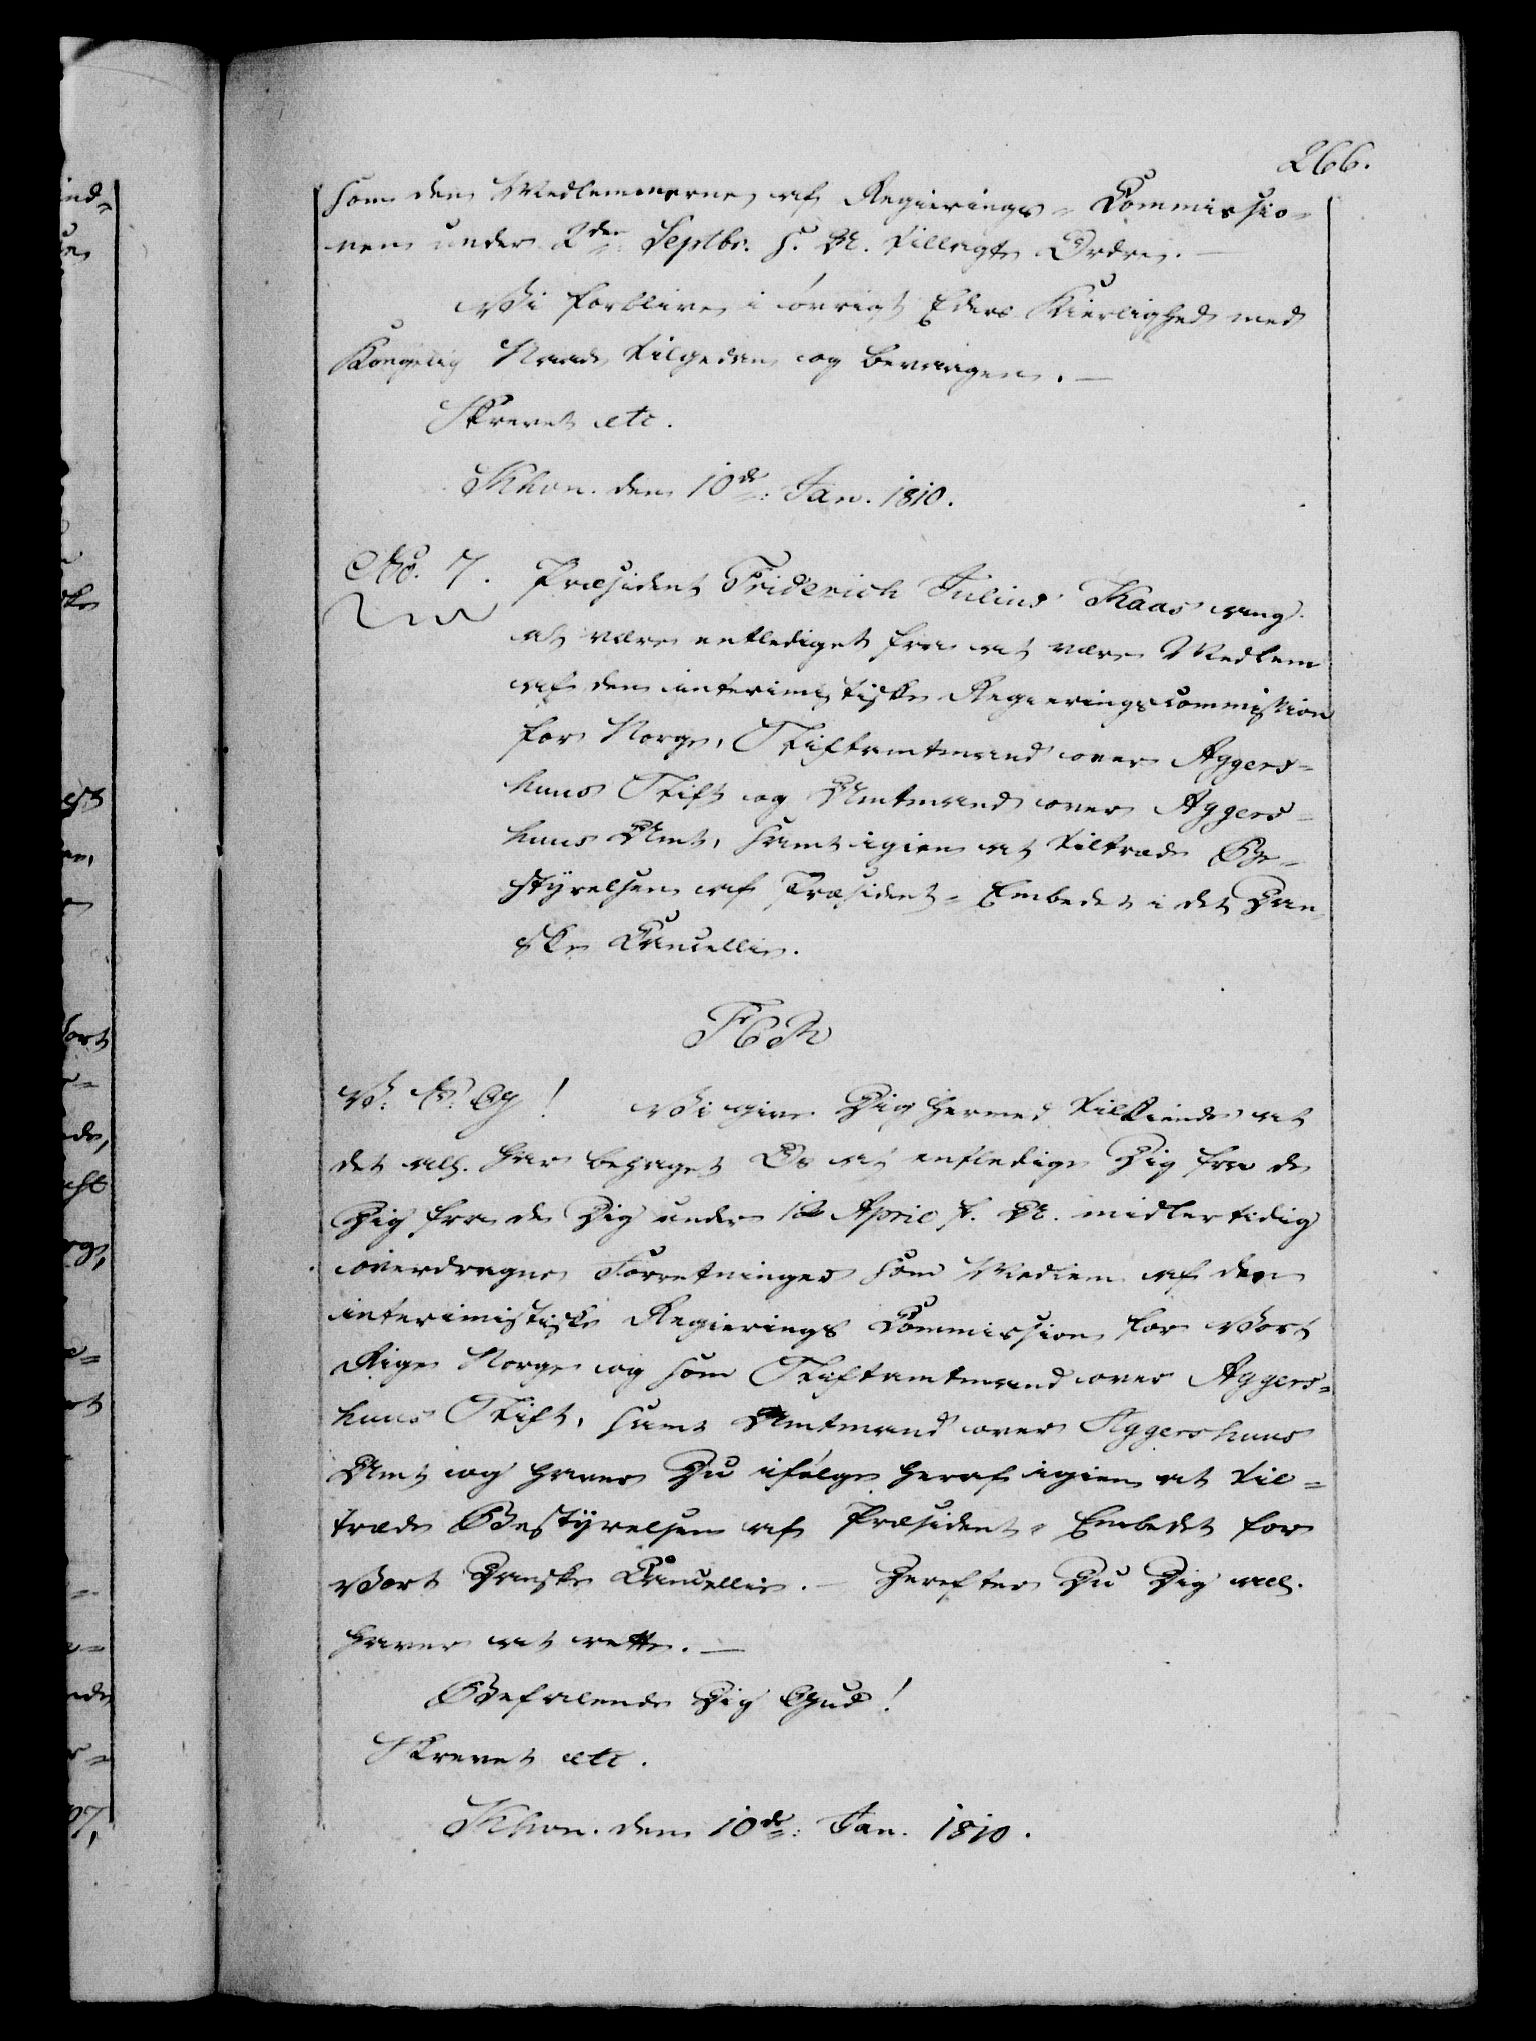 266.
som den Medlemmerne af Regierings-Commissio-
nen under 2den Septbr. s. A. tillagte Ordre. —
Vi forblive i øvrigt Eders Kierlighed med
Kongelig Naade tilgedan og bevaagen. —
Skrevet etc.
Khvn. den 10de: Jan. 1810.
No. 7. Præsident Friderich Julius Kaas ang.
at være entlediget fra at være Medlem
af den interimistiske Regieringscommission
for Norge, Stiftamtmand over Aggers-
huus Stift og Amtmand over Aggers-
huus Amt, samt igien at tiltræde Be-
styrelsen af Præsident-Embedet i det Dan-
ske Cancellie.
F 6 R
V. G. T! Vi give Dig hermed tilkiende at
det all. har behaget Os at entledige Dig fra de
Dig fra de Dig under 12 April f. A. midlertidig
overdragne Forretninger som Medlem af den
interimistiske Regierings Commission for Vort
Rige Norge og som Stiftamtmand over Aggers-
huus Stift, samt Amtmand over Aggershuus
Amt og haver Du ifølge heraf igien at til-
træde Bestyrelsen af Præsident-Embedet for
Vort Danske Cancellie. — Herefter Du Dig all.
haver at rette. —
Befalende Dig Gud!
Skrevet etc.
Khvn. den 10de: Jan. 1810.